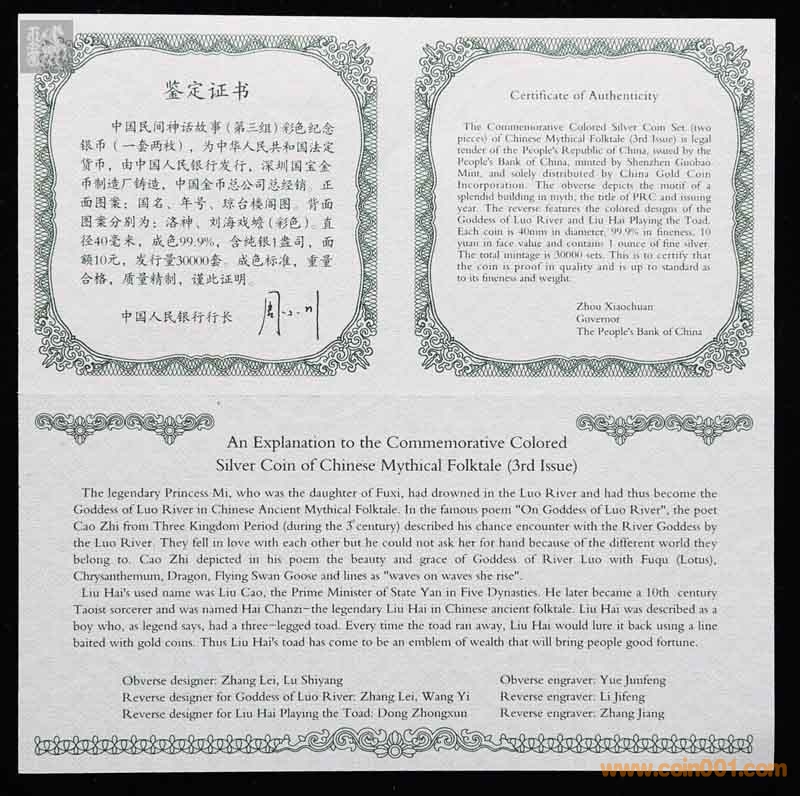 鉴定证书
中国民间神话故事（第三组）彩色纪念
银币（一套两枚），为中华人民共和国法定
货币，由中国人民银行发行，深圳国宝金
币制造厂铸造，中国金币总公司总经销。正
面图案：国名、年号、琼台楼阁图。背面
图案分别为：洛神、刘海戏蟾（彩色）。直
径40毫米，成色99.9%，含纯银1盎司，面
额10元，发行量30000套。成色标准，重量
合格，质量精制，谨此证明。
中国人民银行行长
Certificate of Authenticity
The Commemorative Colored Silver Coin Set (two
pieces) of Chinese Mythical Folktale (3rd Issue) is legal
tender of the People's Republic of China, issued by the
People's Bank of China, minted by Shenzhen Guobao
Mint, and solely distributed by China Gold Coin
Incorporation. The obverse depicts the motif of a
splendid building in myth, the title of PRC and issuing
year. The reverse features the colored designs of the
Goddess of Luo River and Liu Hai Playing the Toad.
Each coin is 40mm in diameter, 99.9% in fineness, 10
yuan in face value and contains 1 ounce of fine silver.
The total mintage is 30000 sets. This is to certify that
the coin is proof in quality and is up to standard as
to its fineness and weight.
Zhou Xiaochuan
Governor
The People's Bank of China
An Explanation to the Commemorative Colored
Silver Coin of Chinese Mythical Folktale (3rd Issue)
The legendary Princess Mi, who was the daughter of Fuxi, had drowned in the Luo River and had thus become the
Goddess of Luo River in Chinese Ancient Mythical Folktale. In the famous poem "On Goddess of Luo River", the poet
Cao Zhi from Three Kingdom Period (during the 3rd century) described his chance encounter with the River Goddess by
the Luo River. They fell in love with each other but he could not ask her for hand because of the different world they
belong to. Cao Zhi depicted in his poem the beauty and grace of Goddess of River Luo with Fuqu (Lotus),
Chrysanthemum, Dragon, Flying Swan Goose and lines as "waves on waves she rise".
Liu Hai's used name was Liu Cao, the Prime Minister of State Yan in Five Dynasties. He later became a 10th century
Taoist sorcerer and was named Hai Chanzi-the legendary Liu Hai in Chinese ancient folktale. Liu Hai was described as a
boy who, as legend says, had a three-legged toad. Every time the toad ran away, Liu Hai would lure it back using a line
baited with gold coins. Thus Liu Hai's toad has come to be an emblem of wealth that will bring people good fortune.
Obverse designer: Zhang Lei, Lu Shiyang
Reverse designer for Goddess of Luo River: Zhang Lei, Wang Yi
Reverse designer for Liu Hai Playing the Toad: Dong Zhongxun
Obverse engraver: Yue Junfeng
Reverse engraver: Li Jifeng
Reverse engraver: Zhang Jiang
www.coin001.com